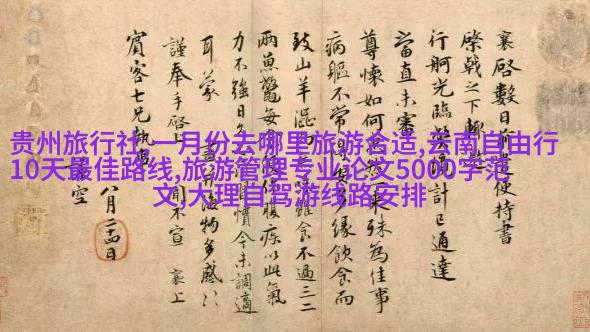 贵州旅行社,一月份去哪里旅游合适,云南自由行
10天最佳路线,旅游管理专业论文5000字范
文,大理自驾游线路安排
襄啓數日前遣使持書
棨戟之下輒
行舸光臨計已通達
當直未審
尊懷如何殊為佳事
病軀不常多緣飲食而
致山羊雖食不過三二
兩魚鱉每疾以此氣
力不強日習慣今未調適
耳蒙書物多感
謹奉手啓上聞不宣襄上
賓客七兄執事
八月二十四日